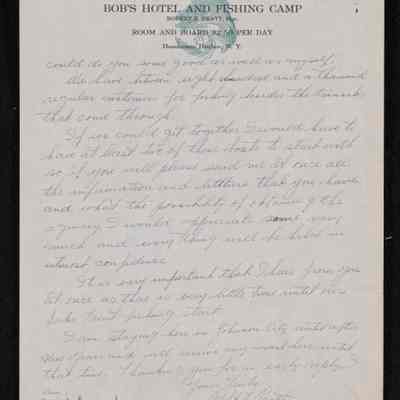 BOB'S HOTEL AND FISHING CAMP
ROBERT E. PRATT, Mgr.
ROOM AND BOARD $2.50 PER DAY
Henderson Harbor, N. Y.
could do you some good as well as myself.
We have between eight hundred and a thousand
regular customers for fishing besides the transients
that come through.
If we could get together I would have to
have at least six of these boats to start with
so if you will please send me at once all
the information and letters that you have
and what the possibility of obtaining the
agency I would appreciate same very
much and everything will be held in
utmost confidence.
It is very important that I hear from you
at once as there is very little time until our
Lake Trout fishing start.
I am staying here in Johnson City until after
New Years and will receive my mail here until
that time. Thanking you for an early reply I
Yours Truly